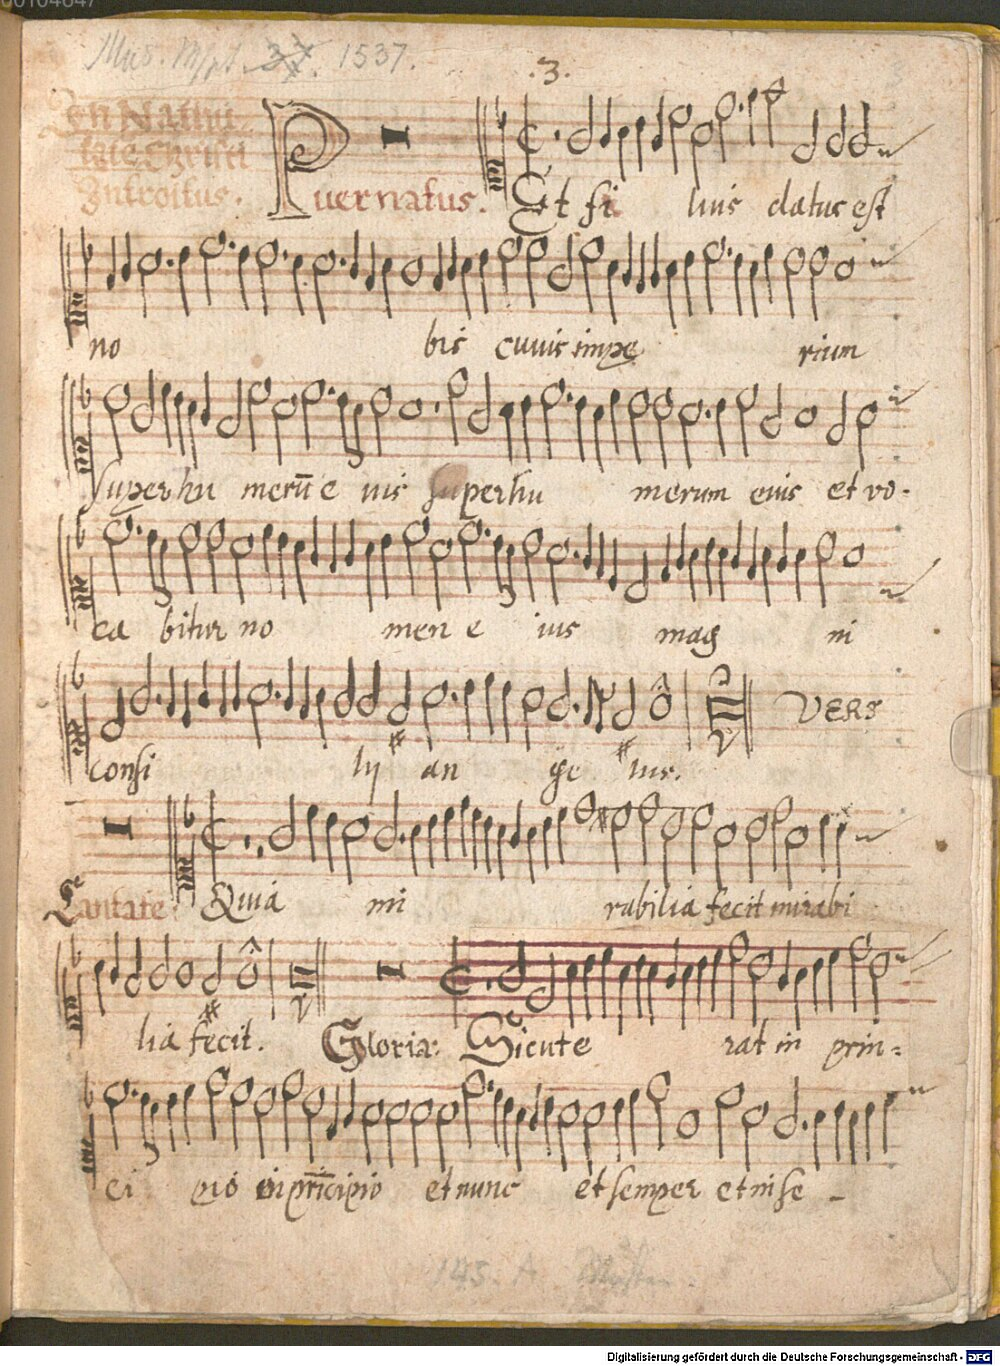 00104647
Mus. Mspt. 37. 1537.
.3.
In Nativi
tate Christi
Introitus.
Puer natus. Et fi lius datus est
no bis cuius impe rium
super hu merū e ius super hu merum eius et vo-
ca bitur no men e ius mag ni
consi lij an ge lus.
VERS
Cantate: Quia mi rabilia fecit mirabi
lia fecit. Gloria: Sicut e rat in prin=
ci pio in principio et nunc et semper et in se -
145. A
Digitalisierung gefördert durch die Deutsche Forschungsgemeinschaft - DFG